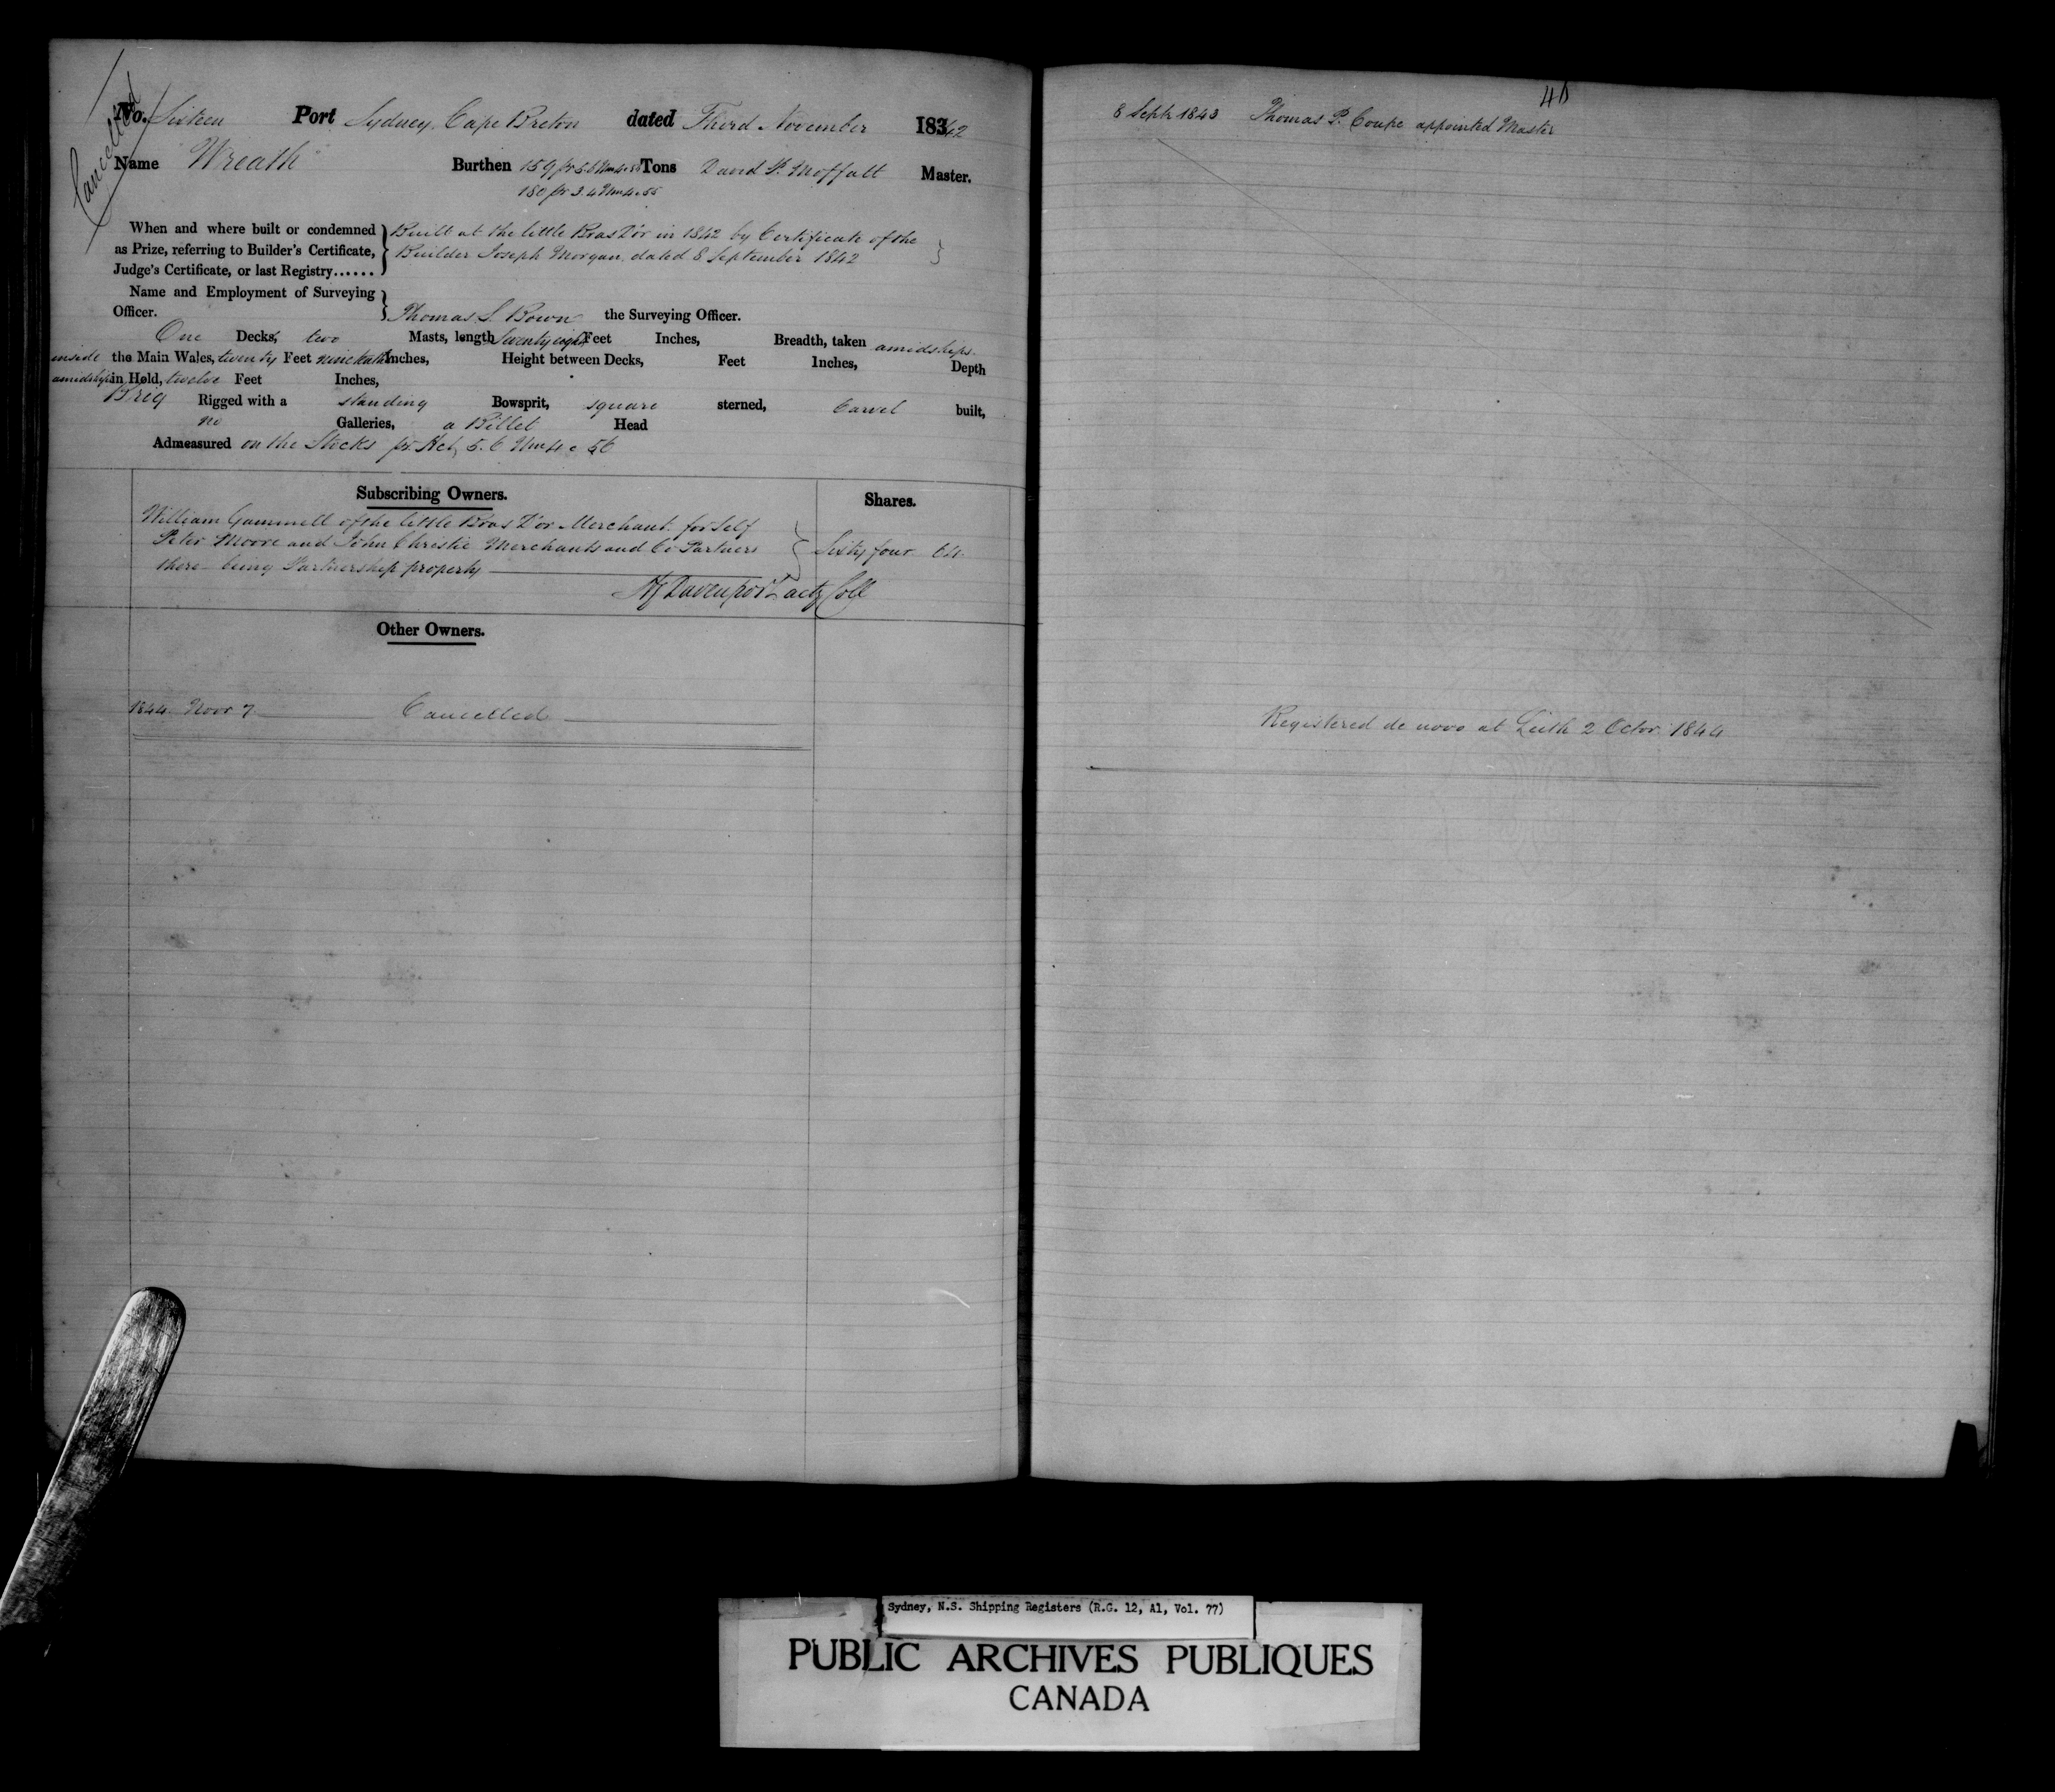 Cancelled
No. Sixteen Port Sydney, Cape Breton dated Third November 1842
Name Wreath Burthen 159 pr 5.6 Wm 4 c 56 Tons David S. Moffatt Master.
180 pr 3.4 Wm 4 c 55
When and where built or condemned Built at the little Bras D'or in 1842 by Certificate of the
as Prize, referring to Builder's Certificate, Builder Joseph Morgan dated 8 September 1842
Judge's Certificate, or last Registry......
Name and Employment of Surveying
Officer. Thomas S. Bown the Surveying Officer.
One Decks, two Masts, length Seventy eight Feet Inches, Breadth, taken amidships
inside the Main Wales, twenty Feet nine tenths Inches, Height between Decks, Feet Inches, Depth
amidships in Hold, twelve Feet Inches,
Brig Rigged with a standing Bowsprit, square sterned, Carvel built,
no Galleries, a Billet Head
Admeasured on the Stocks pr. Act 5.6 Wm 4 c 56
Subscribing Owners. Shares.
William Gammell of the little Bras D'or Merchant for Self
Peter Moore and John Christie Merchants and Co Partners Sixty four 64
there being Partnership property
Davenport actg Coll
Other Owners.
1844 Novr 7 Cancelled
40
8 Septr 1843 Thomas P. Coupe appointed Master
Registered de novo at Leith 2 Octor 1844
Sydney, N.S. Shipping Registers (R.G. 12, A1, Vol. 77)
PUBLIC ARCHIVES PUBLIQUES
CANADA